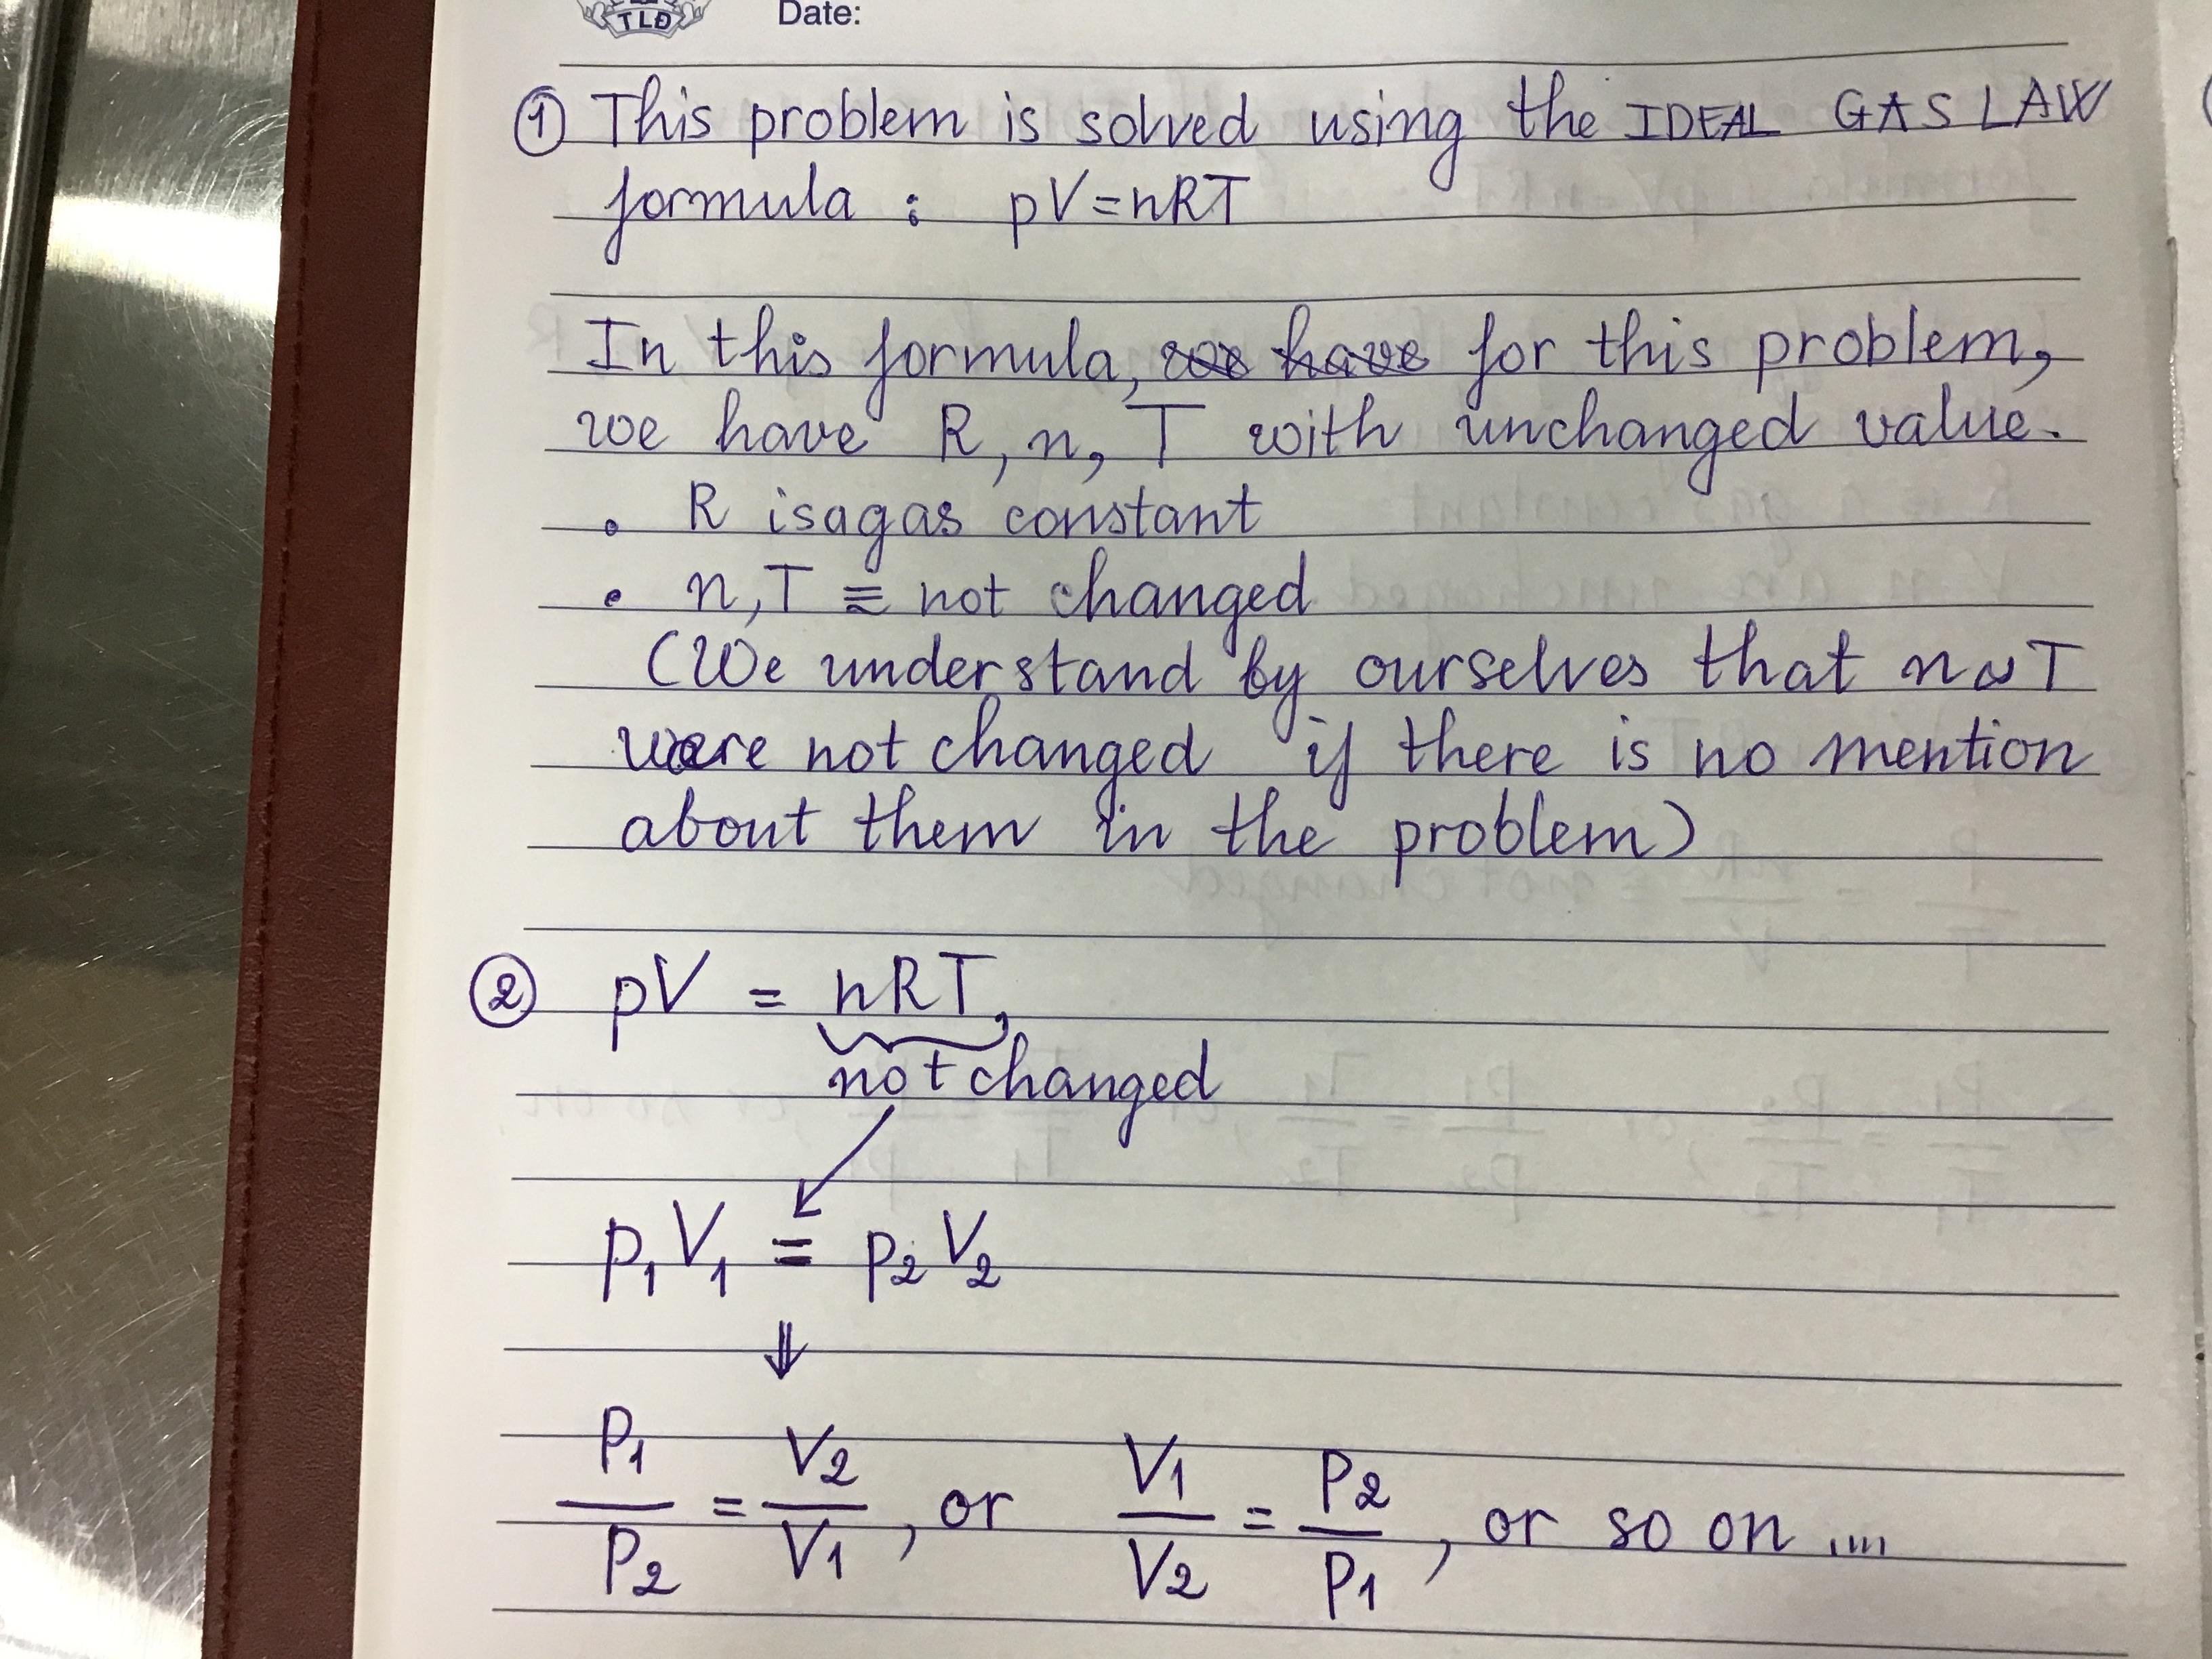 TLĐ Date:
① This problem is solved using the IDEAL GAS LAW
formula : pV=nRT
In this formula, we have for this problem,
we have R, n, T with unchanged value.
• R is a gas constant
• n,T ≡ not changed
(We understand by ourselves that n & T
were not changed if there is no mention
about them in the problem)
② pV = nRT,
not changed
p₁V₁ = p₂V₂
⇓
P₁/P₂ = V₂/V₁, or V₁/V₂ = P₂/P₁, or so on ....